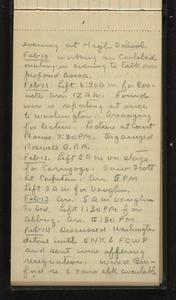 evening at High School.
Feb 10 working in Carlsbad
making evening to talk over
proposed Assoc.
Feb 11 Left 6:30 AM for Ros-
well Arr. 12 A.M. Found
wire re reporting at once
to Washington. Arranging
for lecture. Lecture at Court
House 7:30 PM. Organized
Roswell G.P.A.
Feb 12. Left 8 A M on stage
for Carrizozo. Saw Scott
at Capitan. Arr. 5 PM
Left 2 A M for Vaughn
Feb 13 Arr. 5 A M Vaughn
Left 1:30 PM for
Albuq. Arr. 5:30 PM
Feb 14 Discussed Washington
detail with ENK & FCWP
and sent wire offering
resignation. Wire of Bin-
ford re 2 cars still available